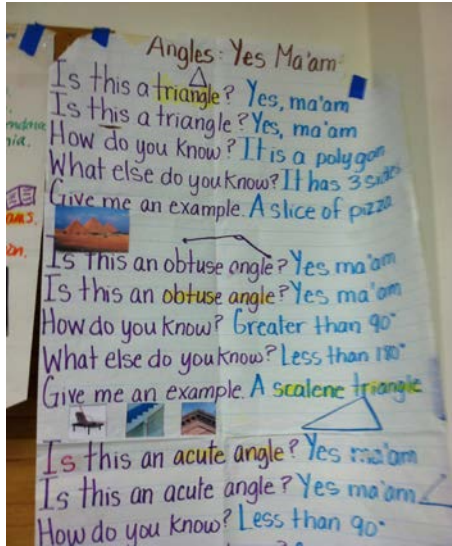 Angles: Yes Ma'am
Is this a triangle? Yes, ma'am
Is this a triangle? Yes, ma'am
How do you know? It is a polygon
What else do you know? It has 3 sides
Give me an example. A slice of pizza
Is this an obtuse angle? Yes ma'am
Is this an obtuse angle? Yes ma'am
How do you know? Greater than 90°
What else do you know? Less than 180°
Give me an example. A scalene triangle
Is this an acute angle? Yes ma'am
Is this an acute angle? Yes ma'am
How do you know? Less than 90°